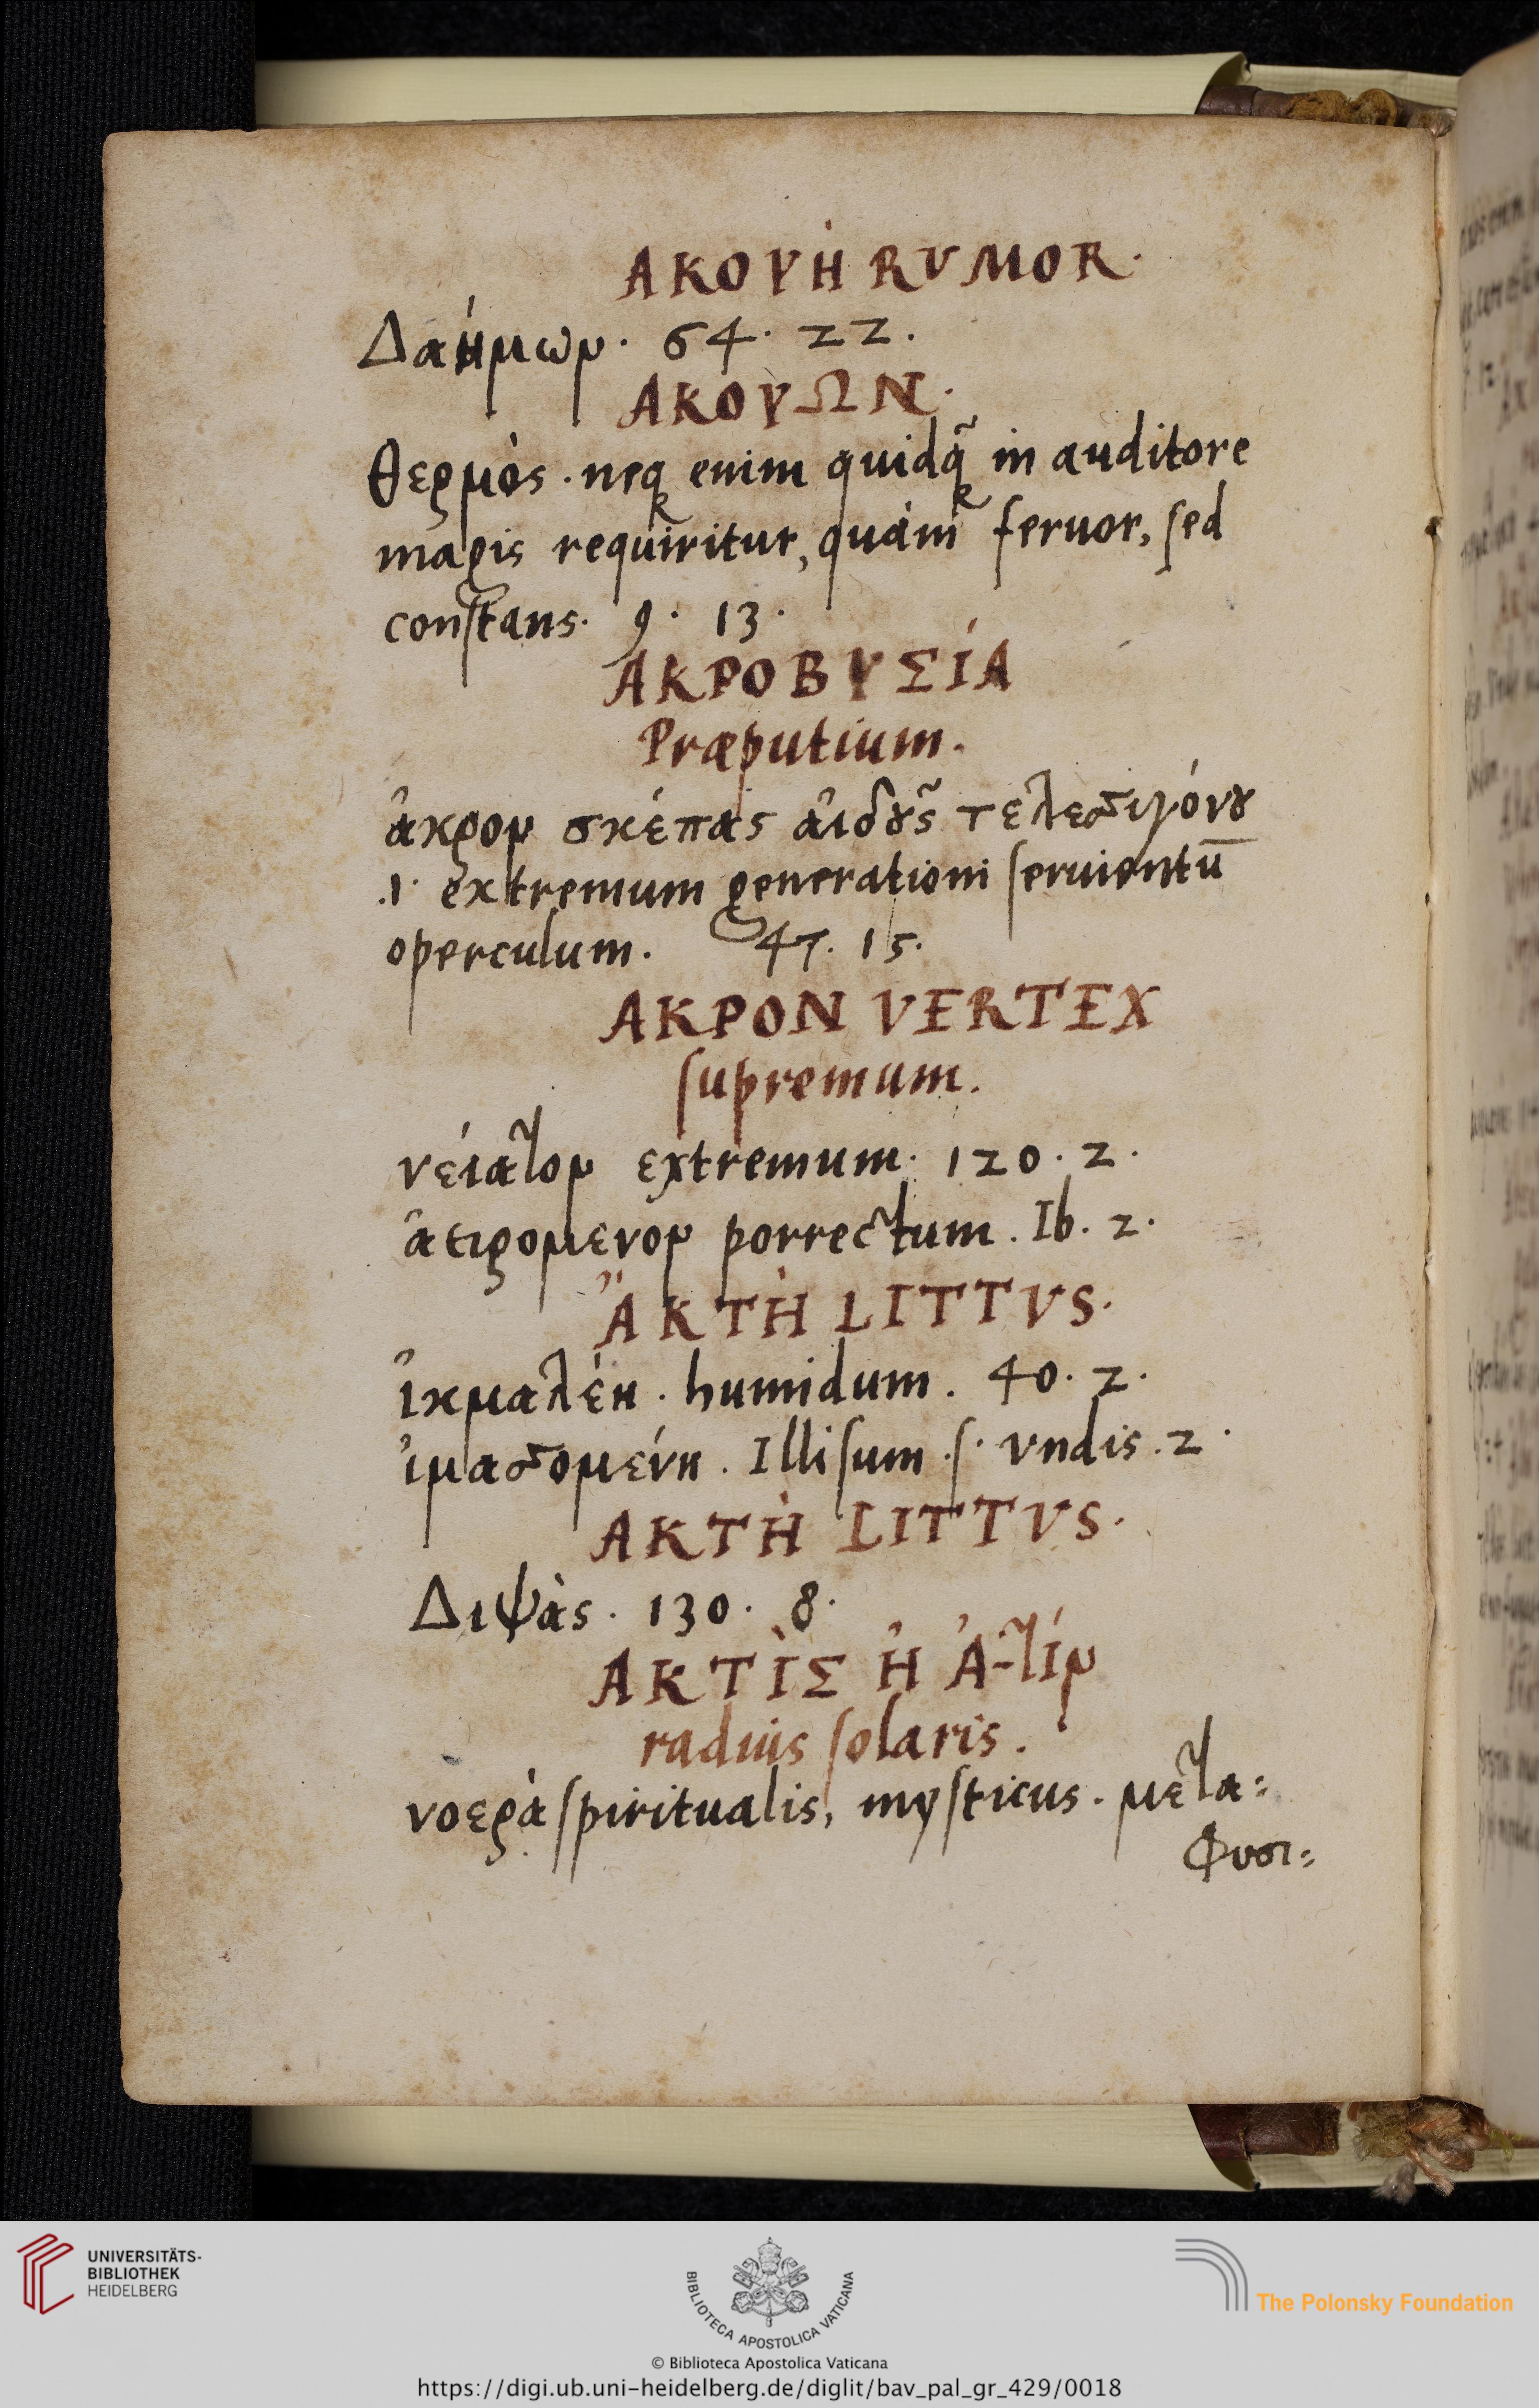 ΑΚΟΥῊ RVMOR.
Δαήμων. 64. 22.
ΑΚΟΥΩΝ.
Θερμὸς. neqꝫ enim quidq̃ in auditore
magis requiritur, quàm feruor, sed
constans. 9. 13.
ΑΚΡΟΒΥΣΊΑ
Præputium.
ἄκρον σκέπας ἀιδȣ͂ς τελεσιγόνȣ
.i. extremum generationi seruientū
operculum. 47. 15.
ΑΚΡΟΝ VERTEX
supremum.
νείατον extremum. 120. 2.
ἀειρομενον porrectum. Ib. 2.
ἈΚΤῊ LITTVS.
ἰκμαλέη. humidum. 40. 2.
ἱμασσομένη. Illisum .s. vndis. 2.
ΑΚΤῊ LITTVS.
Διψὰς. 130. 8.
ΑΚΤῚΣ Ἢ Ἀ-τίν
radius solaris.
νοερὰ spiritualis, mysticus. μετα=
Φυσι=
UNIVERSITÄTS-
BIBLIOTHEK
HEIDELBERG
BIBLIOTECA APOSTOLICA VATICANA
The Polonsky Foundation
© Biblioteca Apostolica Vaticana
https://digi.ub.uni-heidelberg.de/diglit/bav_pal_gr_429/0018